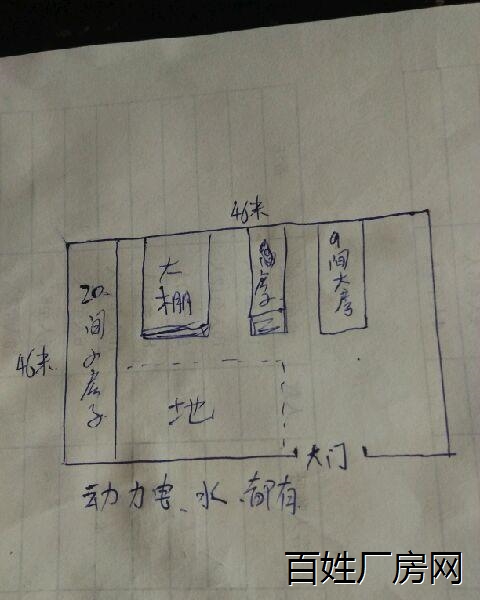 46米
46米
20间小房子
大棚
房子
9间大房
地
大门
动力电、水、都有
百姓厂房网